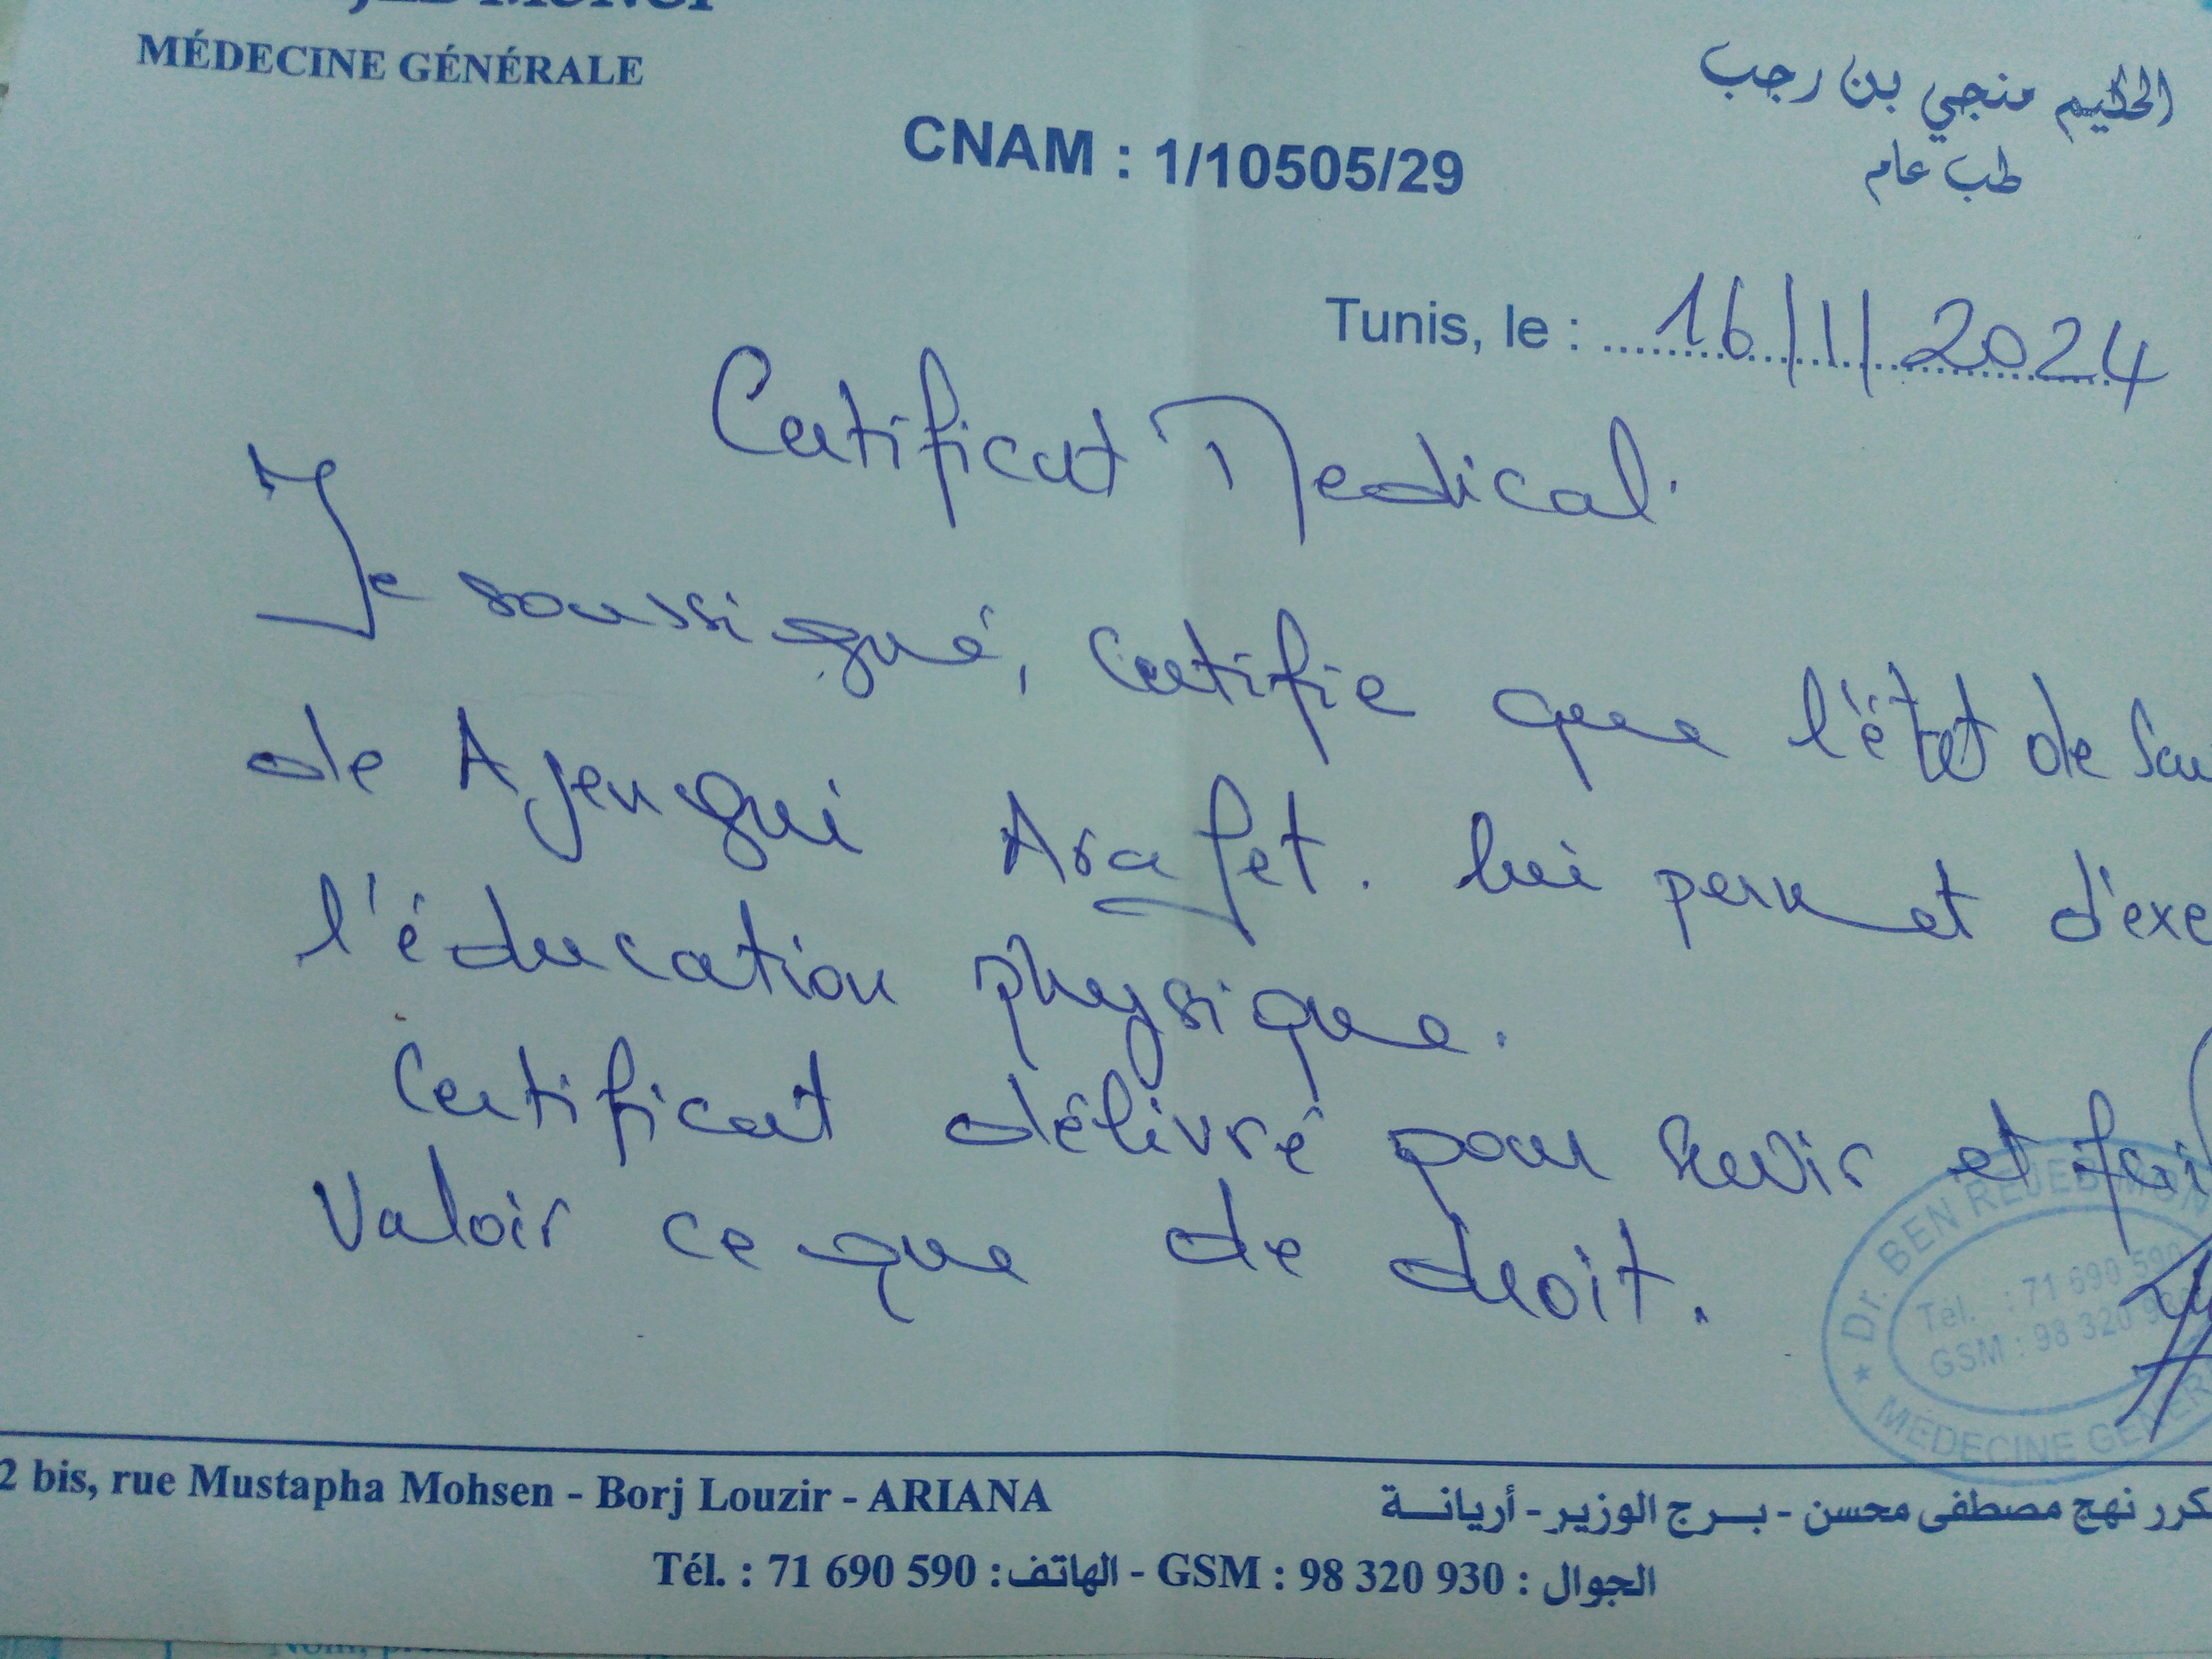 MUNGI
MÉDECINE GÉNÉRALE
الحكيم منجي بن رجب
طب عام
CNAM : 1/10505/29
Tunis, le : 16/1/2024
Certificat Medical.
Je soussigné, certifie que l'état de San
de Ajengui Arafet. lui permet d'exe
l'éducation physique.
Certificat délivré pour servir et fai
Valoir ce que de droit.
Dr. BEN REJEB MON
Tél. : 71 690 590
GSM : 98 320 930
MÉDECINE GÉNÉR
2 bis, rue Mustapha Mohsen - Borj Louzir - ARIANA
كرر نهج مصطفى محسن - بـرج الوزير - أريانـة
Tél. : 71 690 590 : الهاتف - GSM : 98 320 930 : الجوال